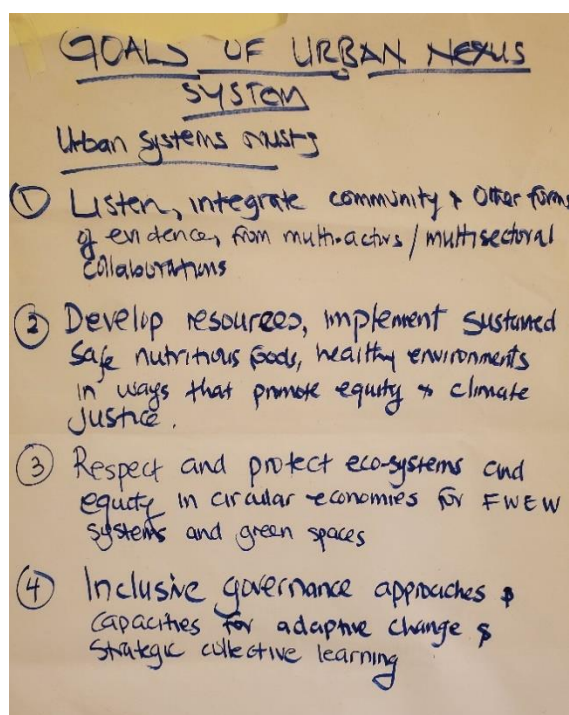 GOALS OF URBAN NEXUS
SYSTEM
Urban systems must;
① Listen, integrate community & other forms
of evidence, from multi-actors / multisectoral
collaborations
② Develop resources, implement sustained
safe nutritious foods, healthy environments
in ways that promote equity & climate
justice.
③ Respect and protect eco-systems and
equity in circular economies for FWEW
systems and green spaces
④ Inclusive governance approaches &
capacities for adaptive change &
strategic collective learning